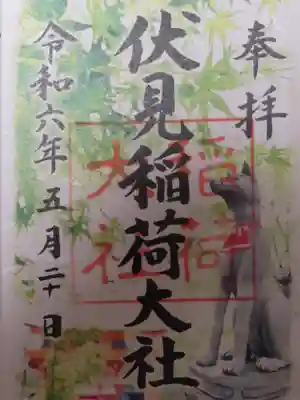 奉拝
伏見稲荷大社
令和六年五月二十日
稲荷
大社